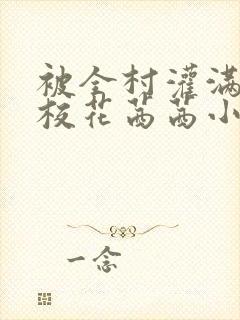 被全村灌满
校花茜茜小
一念